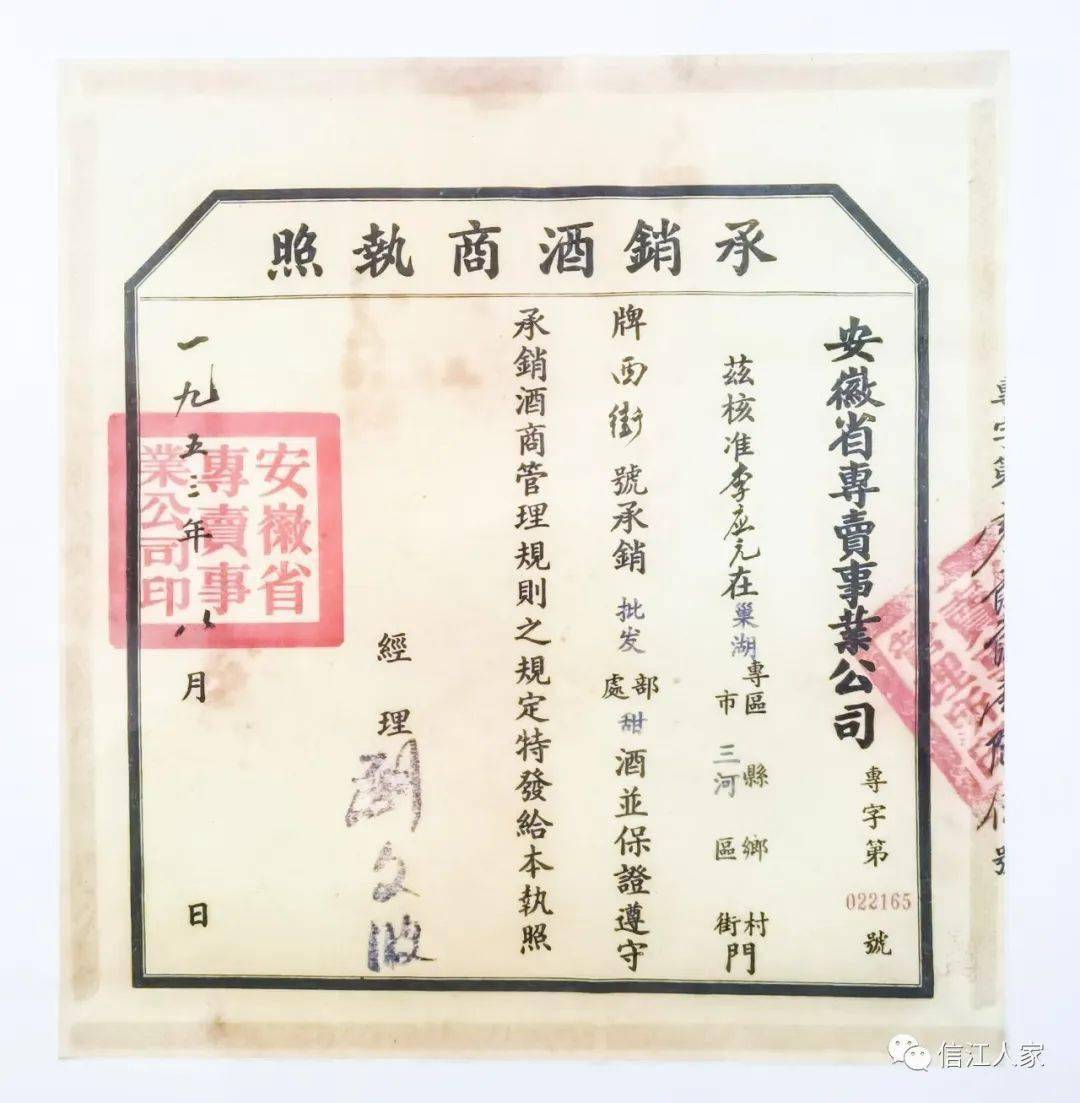 承銷酒商執照
安徽省專賣事業公司 專字第022165號
茲核准李应元在巢湖專區市三河縣區鄉村街門
牌西街號承銷批发部處甜酒並保證遵守
承銷酒商管理規則之規定特發給本執照
經理 劉文波
一九五三年八月 日
安徽省
專賣事
業公司印
專字第
號
信江人家